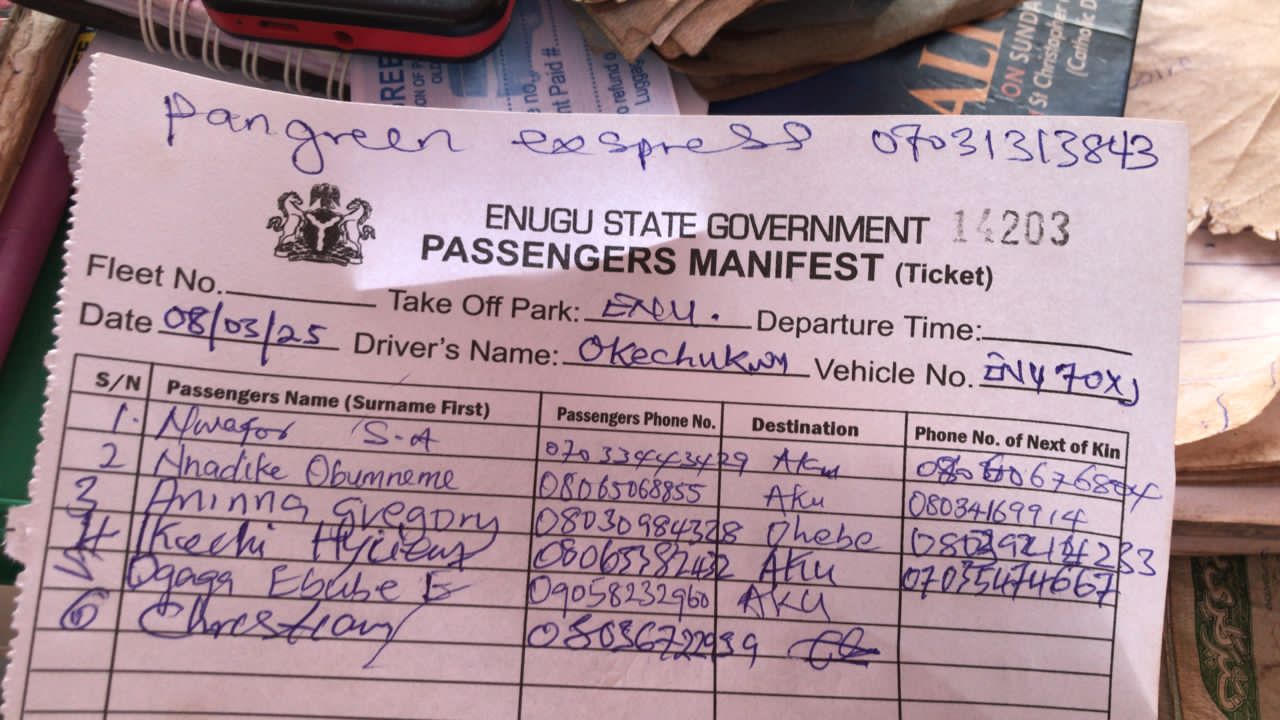 pangreen exspress 07031313843
ENUGU STATE GOVERNMENT 14203
PASSENGERS MANIFEST (Ticket)
Fleet No. Take Off Park: ENU. Departure Time:
Date 08/03/25 Driver's Name: Okechukwu Vehicle No.
S/N Passengers Name (Surname First) Passengers Phone No. Destination Phone No. of Next of Kin
1. Nwafor S-A 07033443429 Aku
2 Nnadike Obumneme 08065068855 Aku 08034169914
3 Aninna Gregory 08030984328 Ohebe
4 Ikechi 08065382432 Aku 07035474667
Ogaga Ebube E 09058232960 AKU
6 08036722939
ALI
ON SUNDA
St Christopher
(Catholic D